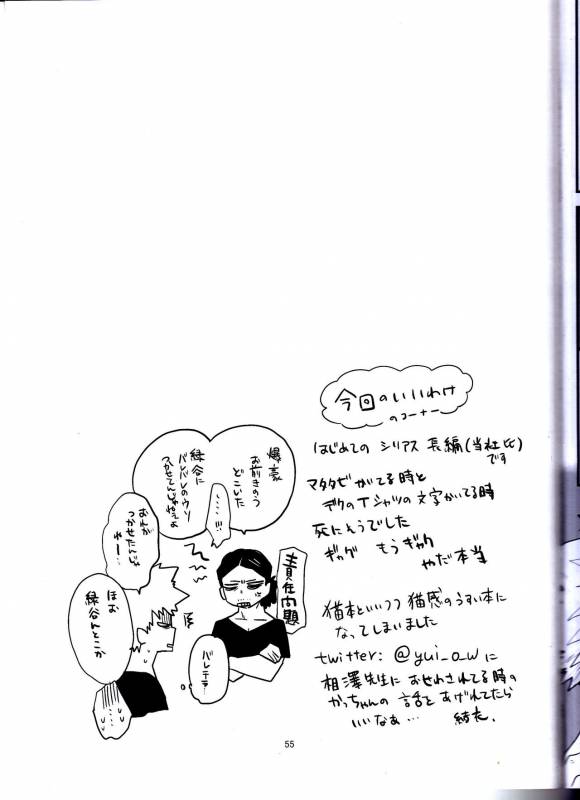 今回のいいわけ
のコーナー
はじめての シリアス 長編(当社比)
です
マタタビがてる時と
デクのTシャツの文字かいてる時
死にそうでした
ギャグ もうギャグ
やだ本当
猫本といいつつ 猫感のうすい本に
なってしまいました
twitter: @yui_o_wに
相澤先生に おせわされてる時の
かっちゃんの 話とあげれてたら
いいなあ…
結衣.
爆豪
お前きのう
どこいた
緑谷に
バレバレのウソ
つかせてんじゃねぇよ
……!!!
おれが
つかせたんじゃ
ねー…
ほお
緑谷んとこか
責任問題
バレテラ…
55